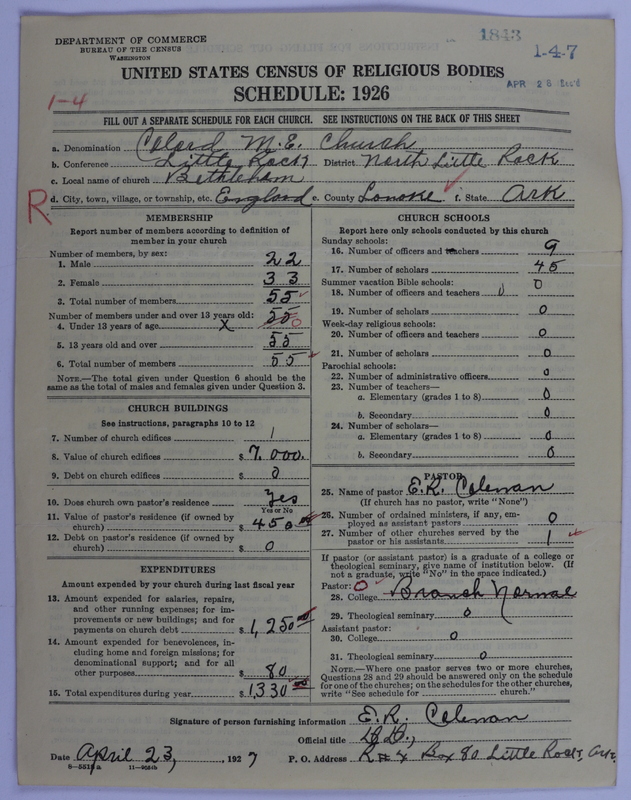 DEPARTMENT OF COMMERCE
BUREAU OF THE CENSUS
WASHINGTON
1843
1-4-7
APR 26
1-4
UNITED STATES CENSUS OF RELIGIOUS BODIES
SCHEDULE: 1926
FILL OUT A SEPARATE SCHEDULE FOR EACH CHURCH. SEE INSTRUCTIONS ON THE BACK OF THIS SHEET
a. Denomination Colord M.E. Church
b. Conference Little Rock District North Little Rock
c. Local name of church Bethlehem
R d. City, town, village, or township, etc. England e. County Lonoke f. State Ark
MEMBERSHIP
Report number of members according to definition of
member in your church
Number of members, by sex:
1. Male 22
2. Female 33
3. Total number of members 55
Number of members under and over 13 years old:
4. Under 13 years of age X 55 0
5. 13 years old and over 55
6. Total number of members 55
NOTE.—The total given under Question 6 should be the
same as the total of males and females given under Question 3.
CHURCH BUILDINGS
See instructions, paragraphs 10 to 12
7. Number of church edifices 1
8. Value of church edifices $ 7,000.
9. Debt on church edifices $ 0
10. Does church own pastor's residence Yes
Yes or No
11. Value of pastor's residence (if owned by
church) $ 450 00
12. Debt on pastor's residence (if owned by
church) $ 0
EXPENDITURES
Amount expended by your church during last fiscal year
13. Amount expended for salaries, repairs,
and other running expenses; for im-
provements or new buildings; and for
payments on church debt $ 1,250 00
14. Amount expended for benevolences, in-
cluding home and foreign missions; for
denominational support; and for all
other purposes $ 80
15. Total expenditures during year $ 1,330 00
CHURCH SCHOOLS
Report here only schools conducted by this church
Sunday schools:
16. Number of officers and teachers 9
17. Number of scholars 45
Summer vacation Bible schools:
18. Number of officers and teachers 0
19. Number of scholars 0
Week-day religious schools:
20. Number of officers and teachers 0
21. Number of scholars 0
Parochial schools:
22. Number of administrative officers 0
23. Number of teachers—
a. Elementary (grades 1 to 8) 0
b. Secondary 0
24. Number of scholars—
a. Elementary (grades 1 to 8) 0
b. Secondary 0
PASTOR
25. Name of pastor E.R. Coleman
(If church has no pastor, write "None")
26. Number of ordained ministers, if any, em-
ployed as assistant pastors 0
27. Number of other churches served by the
pastor or his assistants 1
If pastor (or assistant pastor) is a graduate of a college or
theological seminary, give name of institution below. (If
not a graduate, write "No" in the space indicated.)
Pastor: 0
28. College Branch Normal
29. Theological seminary 0
Assistant pastor:
30. College 0
31. Theological seminary 0
NOTE.—Where one pastor serves two or more churches,
Questions 28 and 29 should be answered only on the schedule
for one of the churches; on the schedules for the other churches,
write "See schedule for church."
Signature of person furnishing information E.R. Coleman
Official title D.D.,
Date April 23, 1927 P. O. Address R # 4 Box 80 Little Rock, Ark.